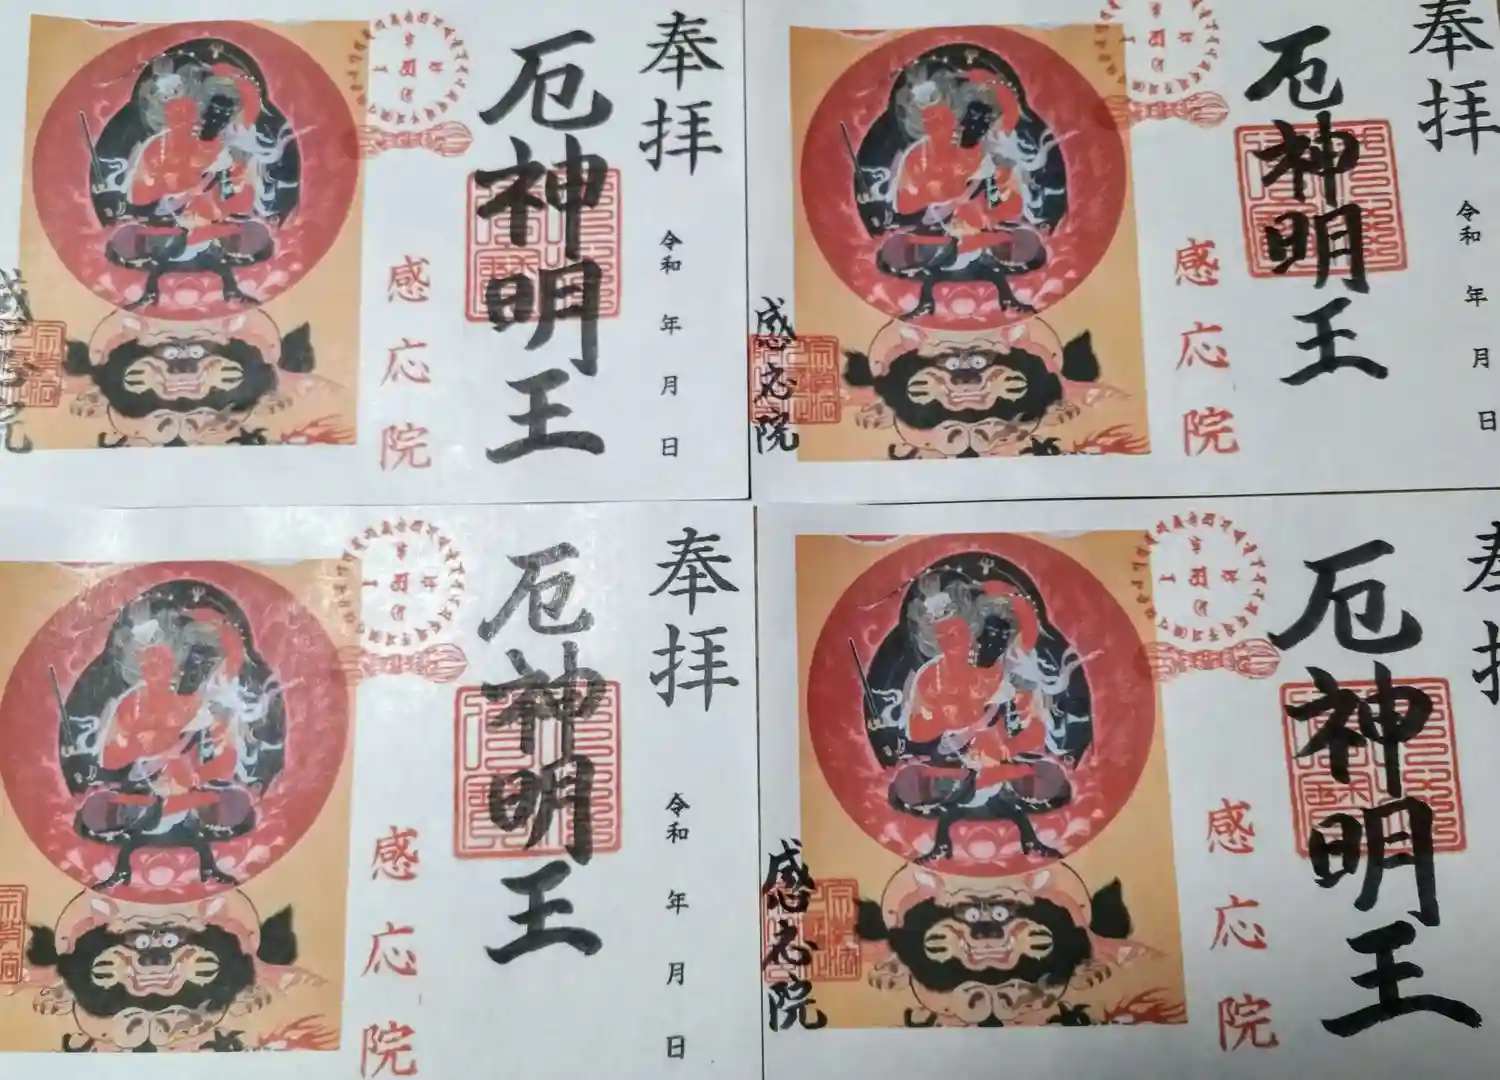 奉拝
令和 年 月 日
厄神明王
感応院
感応院
奉拝
令和 年 月 日
厄神明王
感応院
感応院
奉拝
令和 年 月 日
厄神明王
感応院
奉拝
厄神明王
感応院
感応院